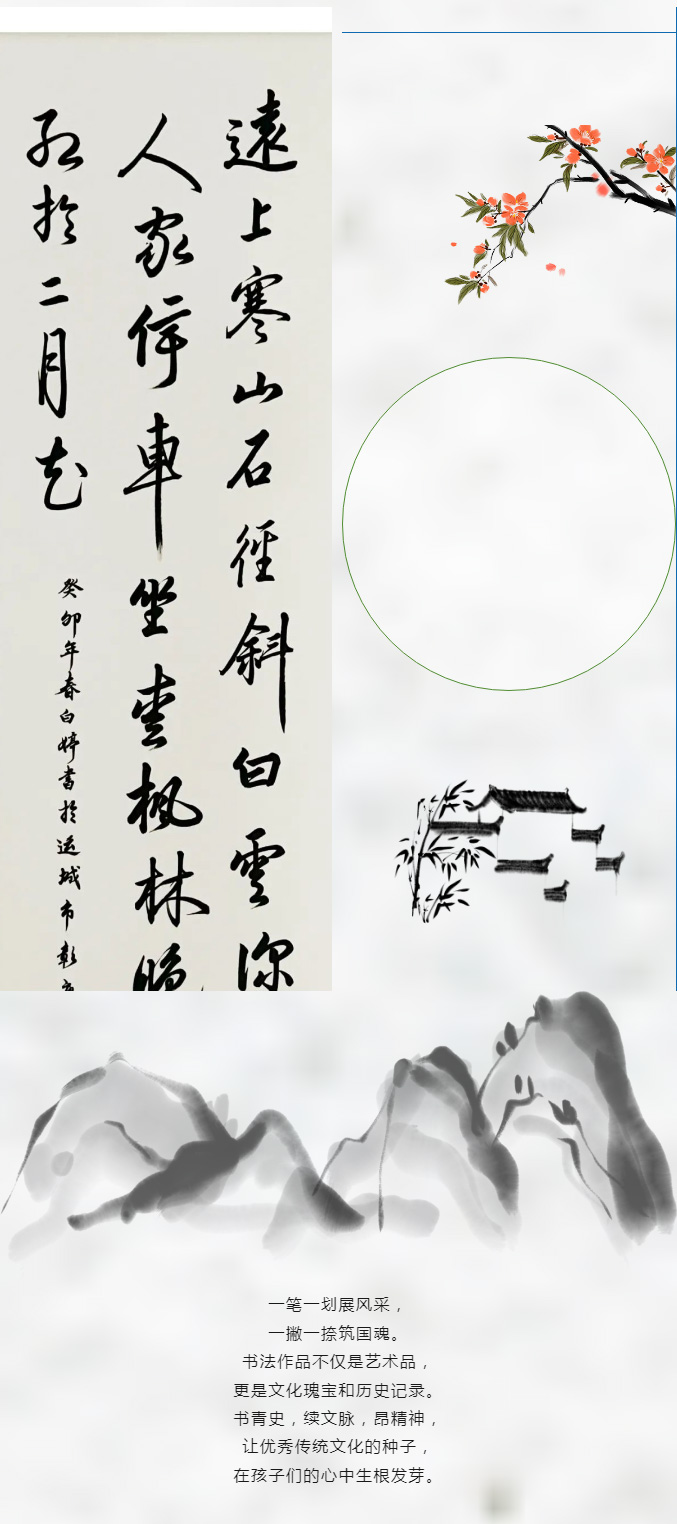 遠上寒山石徑斜白雲深
人家停車坐愛楓林晚
紅於二月花
癸卯年春白婷書於运城市彰
一笔一划展风采，
一撇一捺筑国魂。
书法作品不仅是艺术品，
更是文化瑰宝和历史记录。
书青史，续文脉，昂精神，
让优秀传统文化的种子，
在孩子们的心中生根发芽。